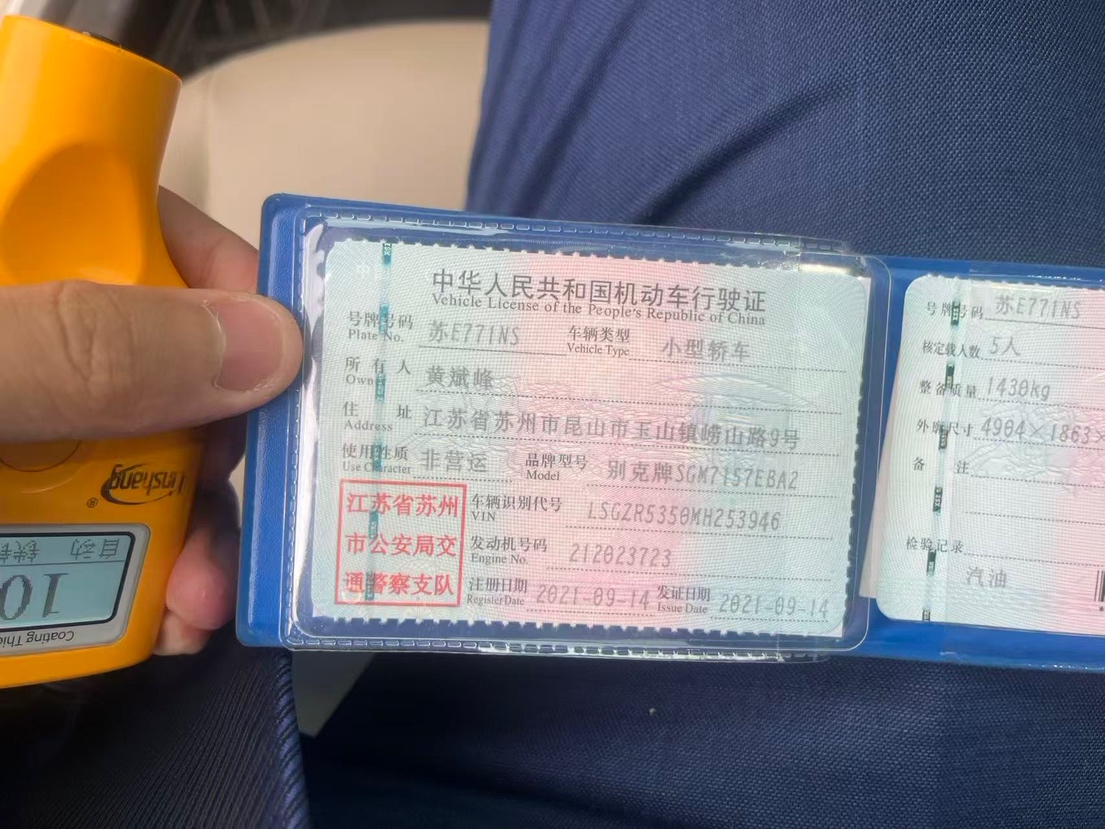 中华人民共和国机动车行驶证
Vehicle License of the People's Republic of China
号牌号码 苏E771NS 车辆类型 小型轿车
Plate No. Vehicle Type
所有人 黄斌峰
Owner
住址 江苏省苏州市昆山市玉山镇崂山路9号
Address
使用性质 非营运 品牌型号 别克牌SGM7157EBA2
Use Character Model
江苏省苏州
市公安局交
通警察支队
车辆识别代号 LSGZR5350MH253946
VIN
发动机号码 212023723
Engine No.
注册日期 2021-09-14 发证日期 2021-09-14
Register Date Issue Date
号牌号码 苏E771NS
核定载人数 5人
整备质量 1430kg
外廓尺寸 4904×1863×
备注
检验记录
汽油
Linshang®
自动
10